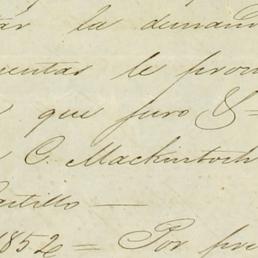 ar la deman
entar le pro
que juro &=
C. Mackintosh
astillo —
1852 = Por pre